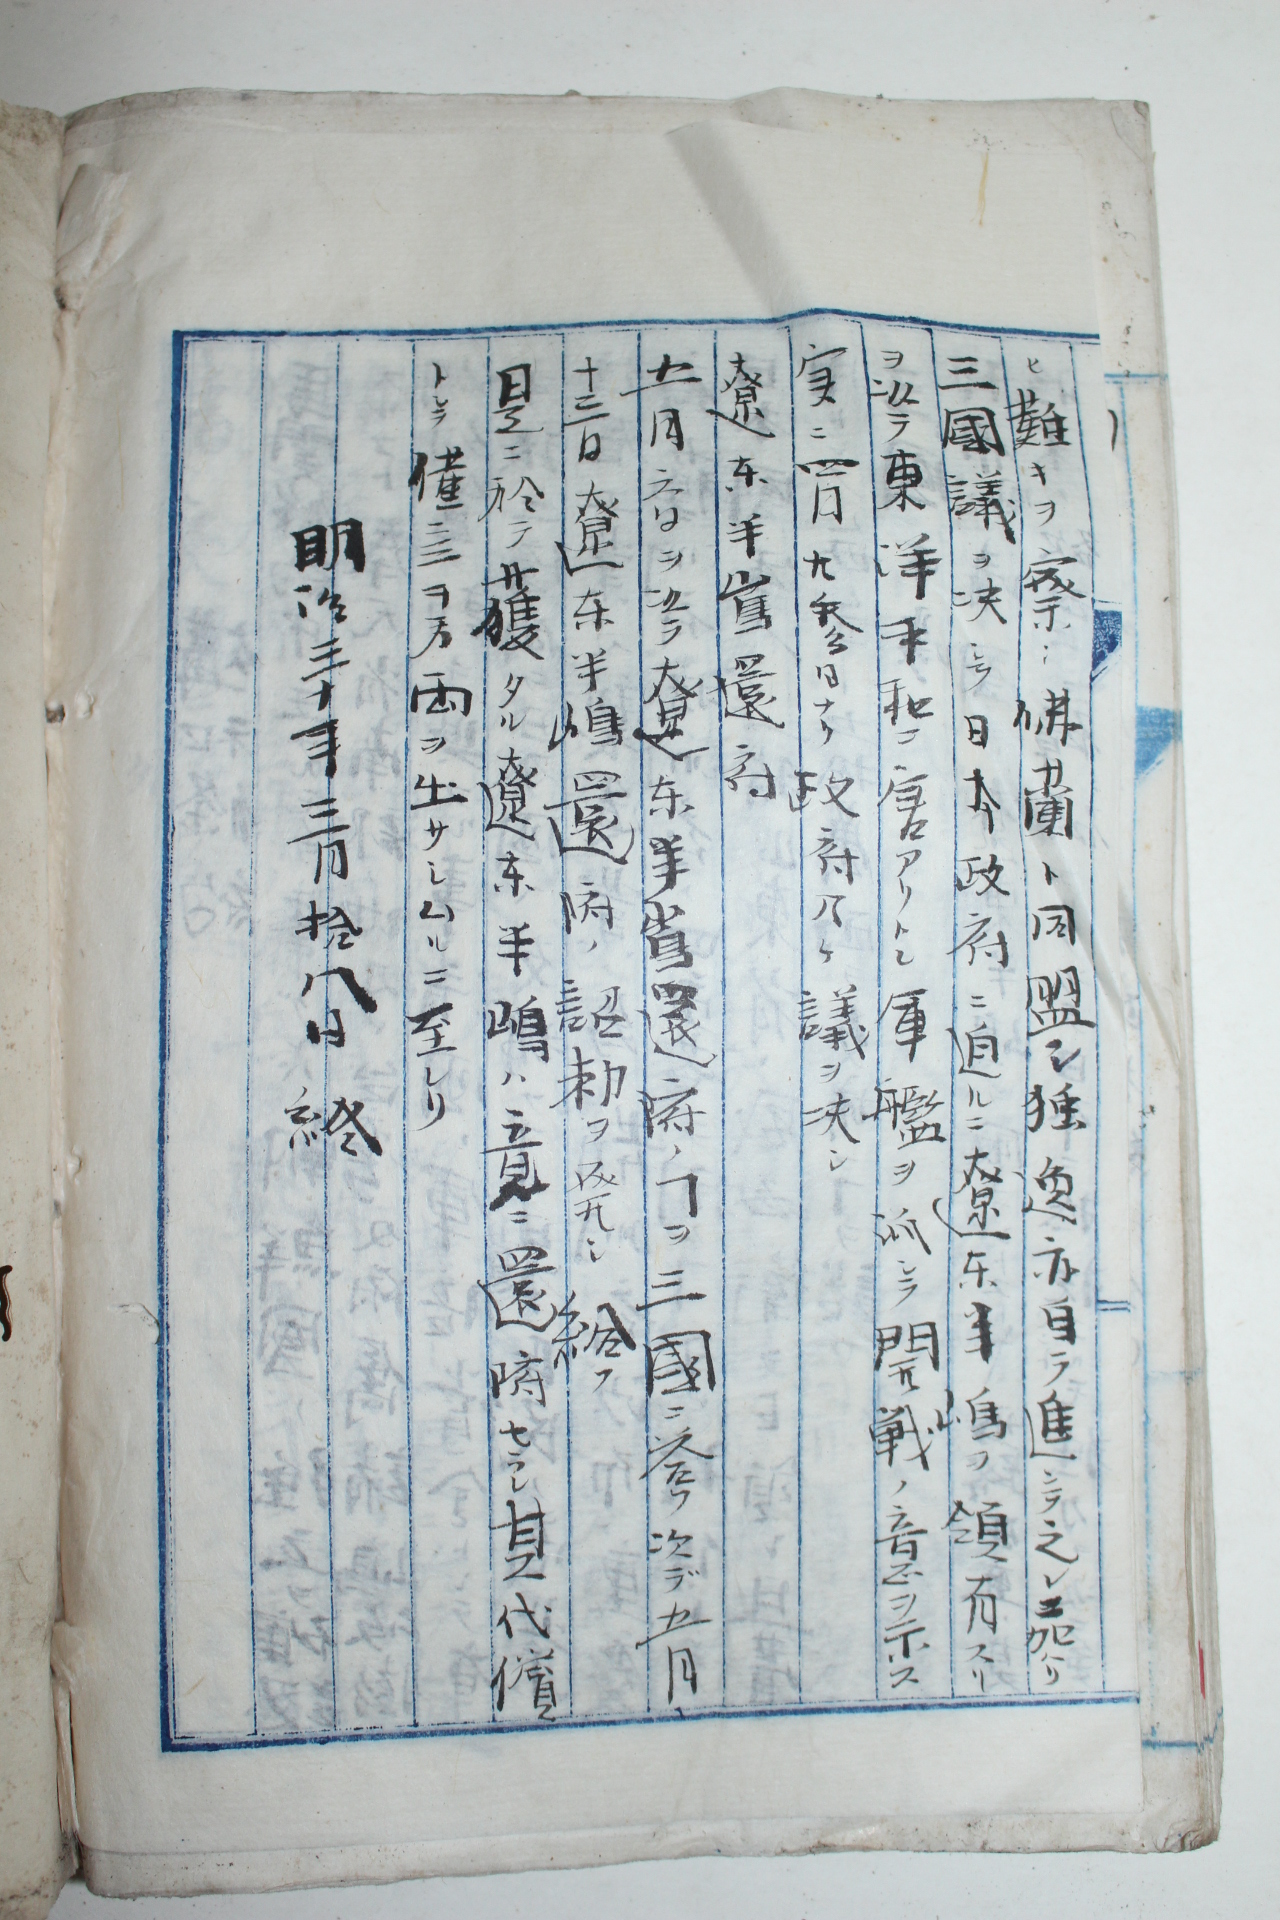 ヒ難キヲ察シ佛蘭ト同盟シ独逸亦自ラ進ンテ之レニ加ハリ
三國議ヲ决シテ日本政府ニ迫ルニ遼东半嶋ヲ領有スル
ヲ以テ東洋平和ニ害アリトシ軍艦ヲ派シテ開戦ノ音ヲ示ス
実ニ四月九日ナリ政府乃ケ議ヲ决シ
遼东半嶌還府
五月六日ヲ以テ遼东半嶌還府ノ丁ヲ三國ニ答フ次デ五月
十三日遼东半嶋還府ノ詔勅ヲ発シ給フ
是ニ於テ獲タル遼東半嶋ハ竟ニ還府セラレ其代償
トシテ僅ニ三ヲ万両ヲ出サシムルニ至レリ
明治三十年三月拾八日終